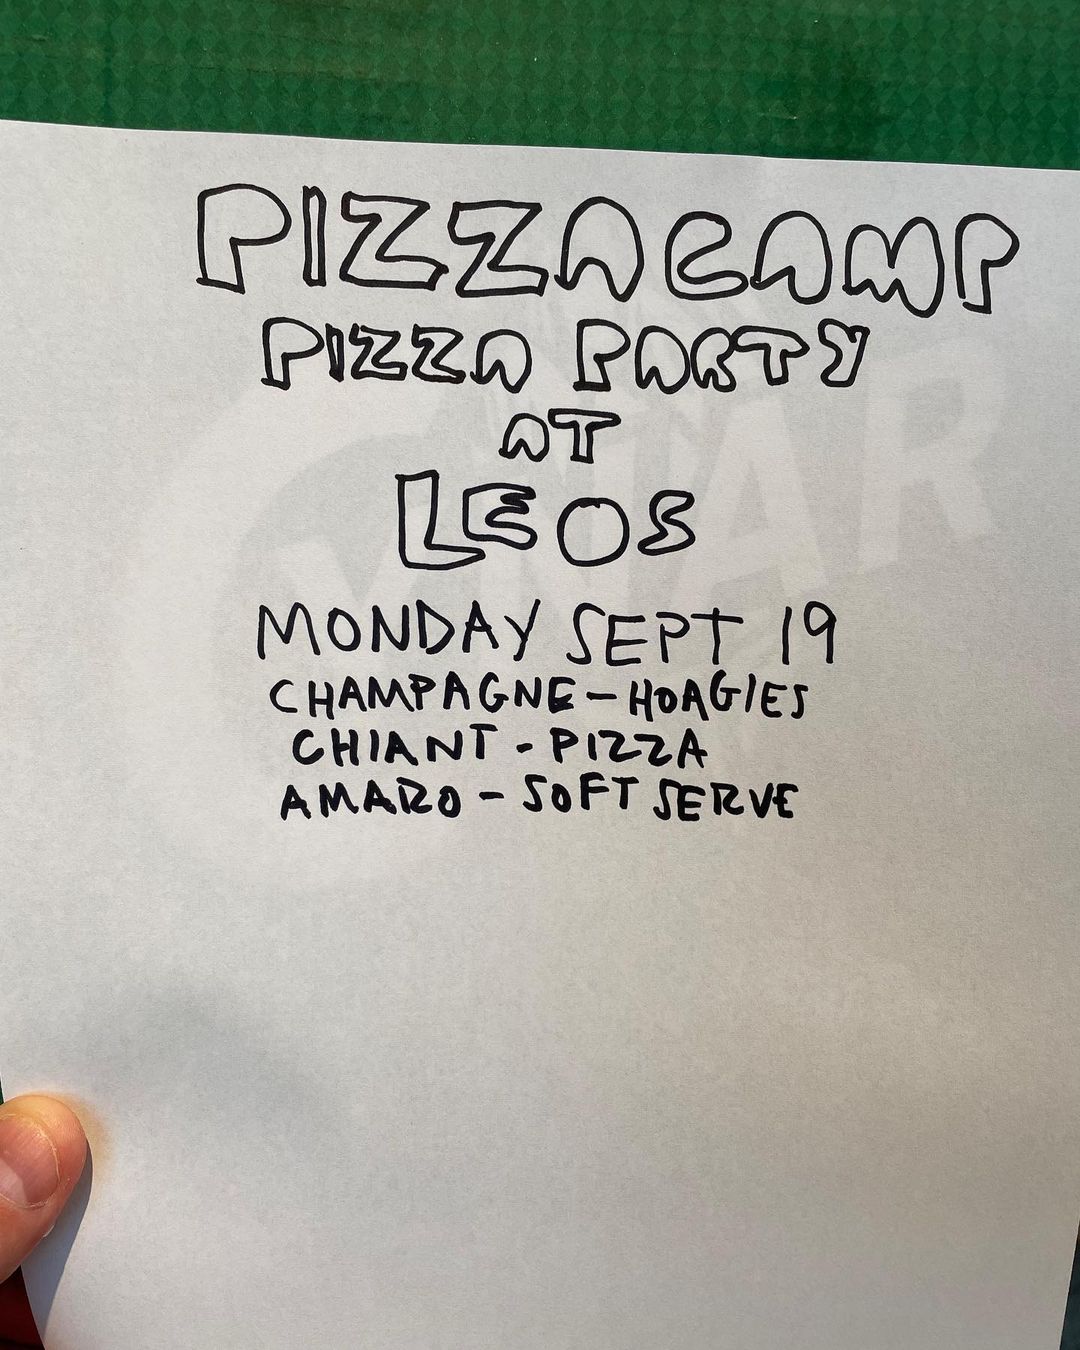 PIZZA CAMP
PIZZA PARTY
AT
LEOS
MONDAY SEPT 19
CHAMPAGNE - HOAGIES
CHIANT - PIZZA
AMARO - SOFT SERVE